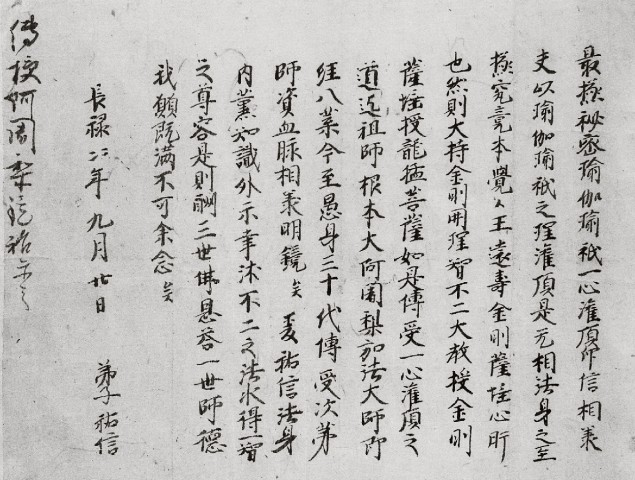 最極秘密瑜伽瑜祇一心灌頂印信相承
夫以瑜伽瑜祇之理灌頂是无相法身之至
極究竟本覺心王遠壽金剛薩埵心所
也然則大持金剛開理智不二大教授金剛
薩埵授龍猛菩薩如是傳受一心灌頂之
道迄祖師根本大阿闍梨弘法大師即
経八葉今至愚身三十代傳受次第
師資血脉相承明鏡矣爰祐信法身
内薫知識外示幸沐不二之法水得一智
之尊容是則酬三世佛恩荅一世師德
我願既滿不可余念矣
長禄六年九月廿日 弟子祐信
傳授阿闍梨祐